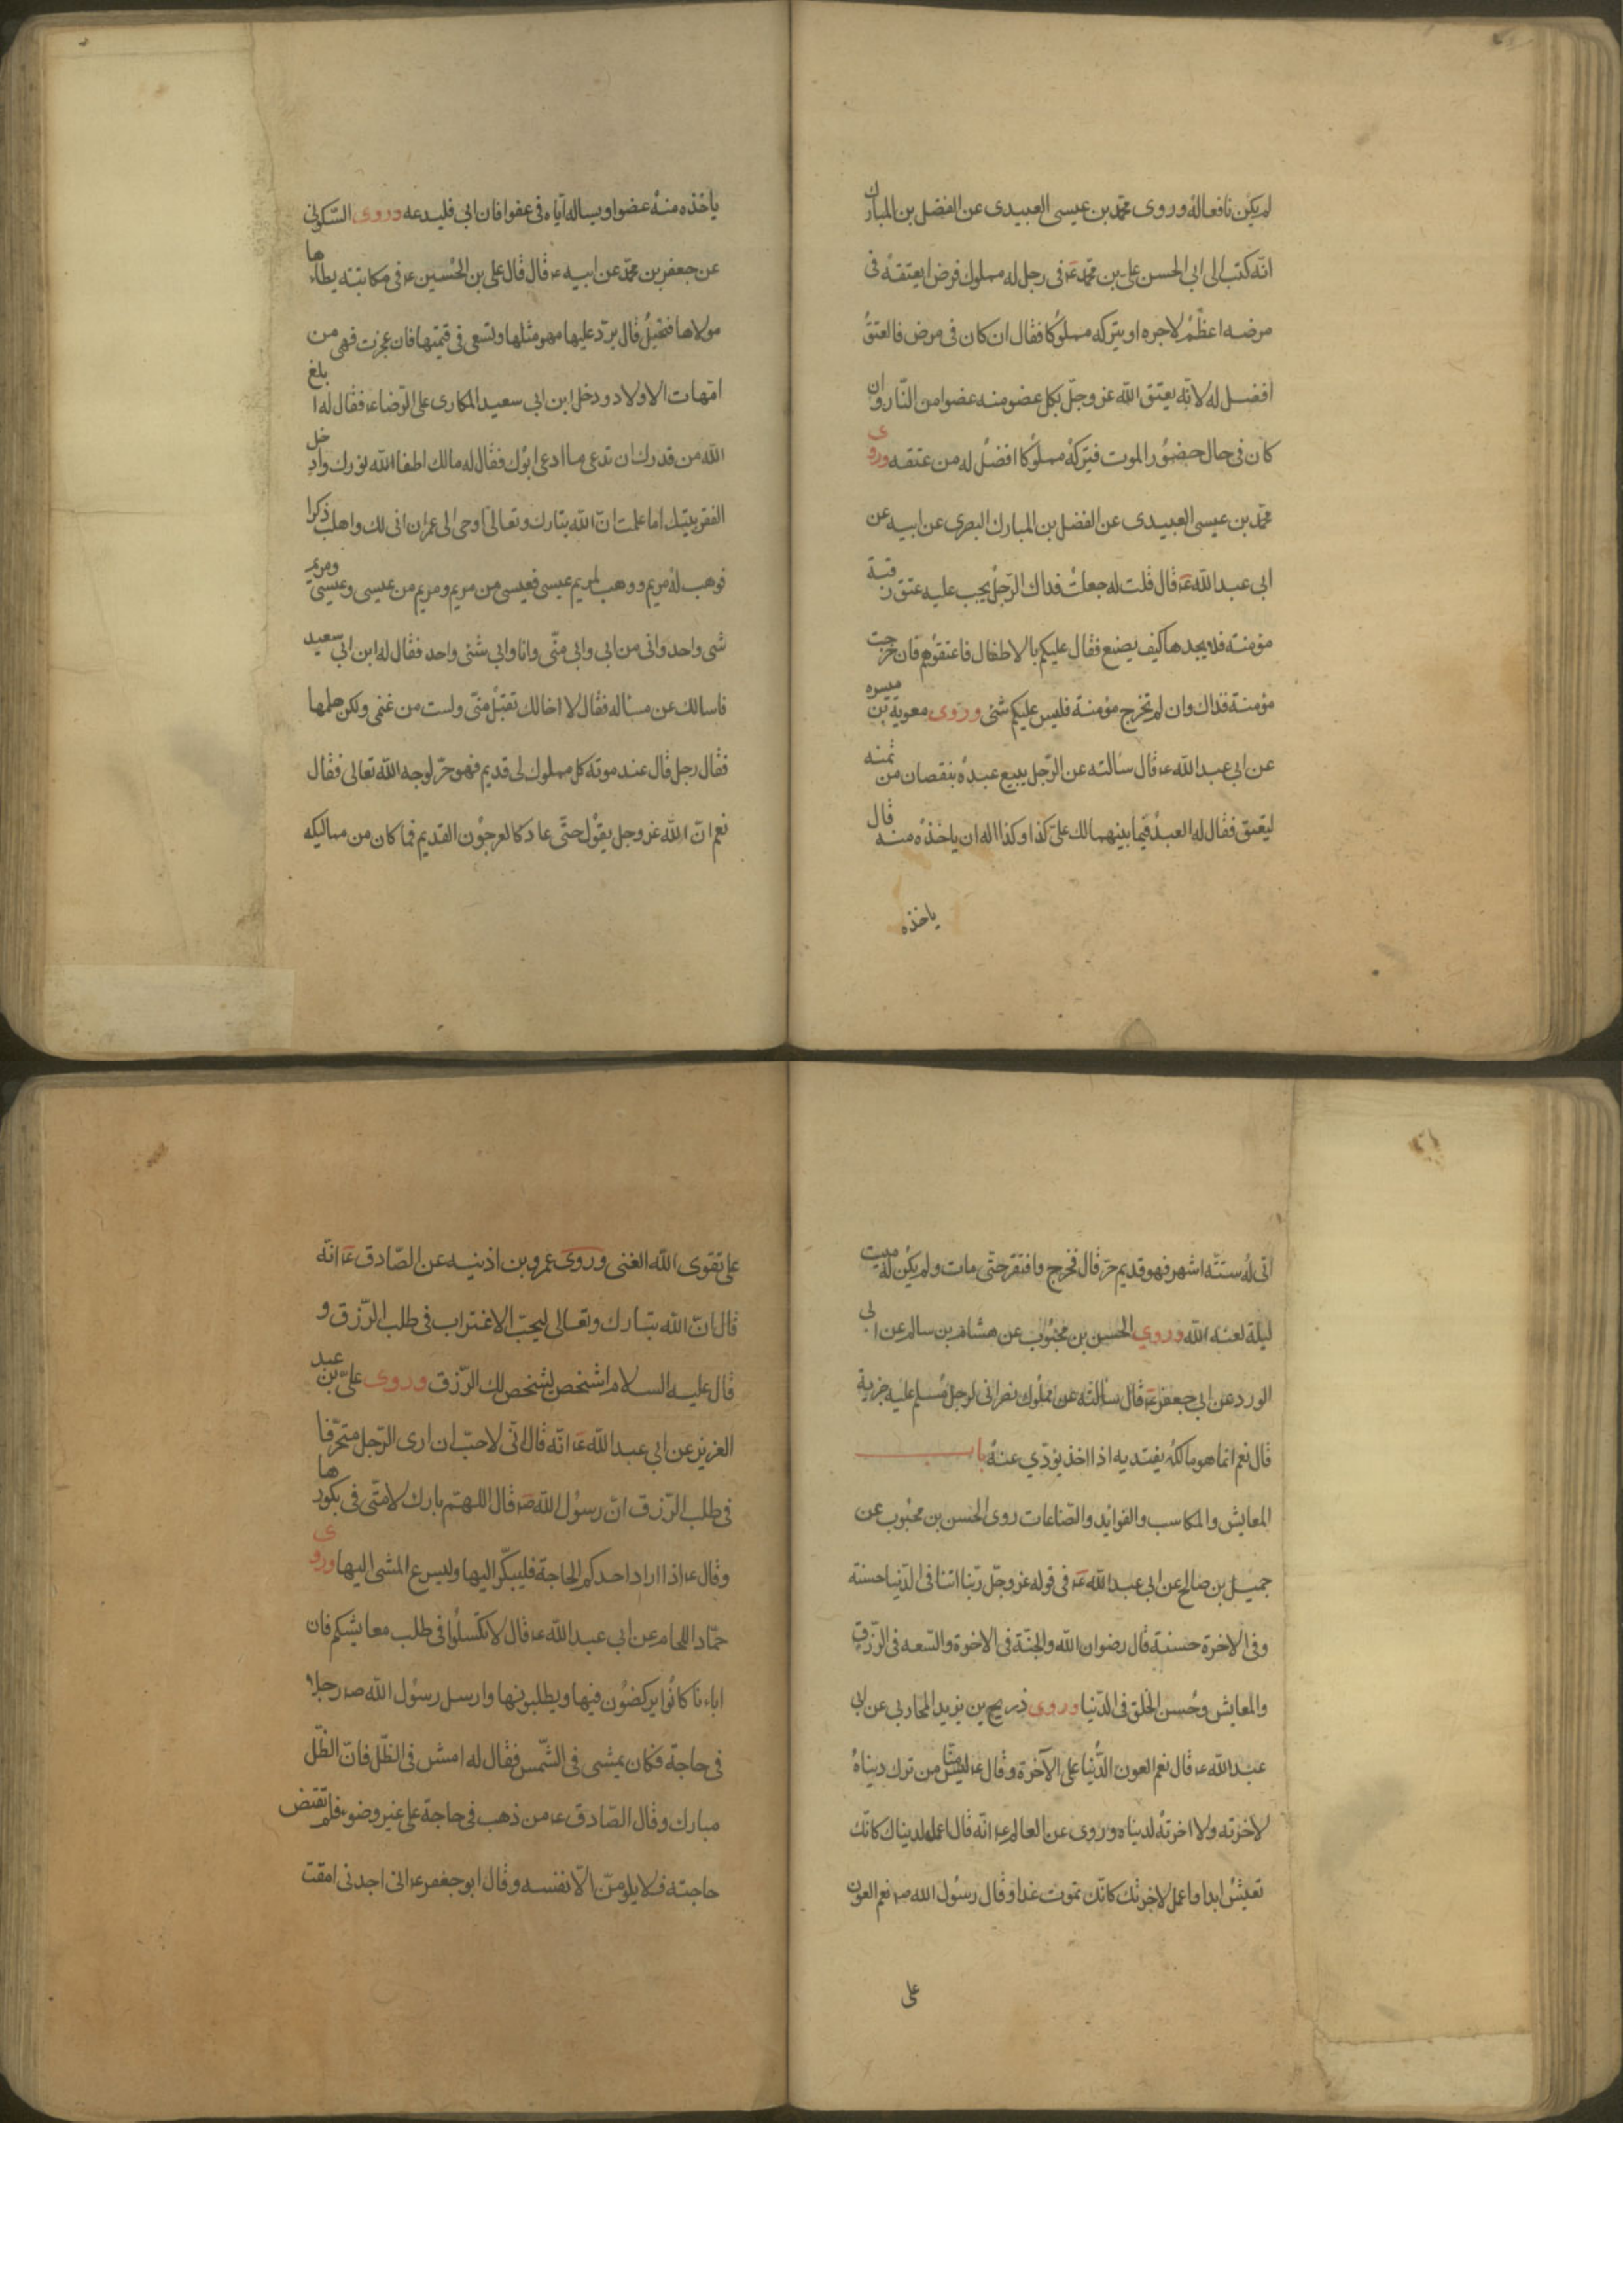 لم يكن نافعا له وروى محمد بن عيسى العبيدى عن الفضل بن المبارك
انه كتب الى ابي الحسن علي بن محمد ع في رجل له مملوك فمرض ايعتقه في
مرضه اعظم لاجره او يتركه مملوكا فقال ان كان في مرض فالعتق
افضل له لانه يعتق الله عز وجل بكل عضو منه عضوا من النار وان
كان في حال حضور الموت فيتركه مملوكا افضل له من عتقه وروى
محمد بن عيسى العبيدى عن الفضل بن المبارك البصرى عن ابيه عن
ابي عبد الله ع قال قلت له جعلت فداك الرجل يجب عليه عتق رقبة
مؤمنة فلا يجدها كيف يصنع فقال عليكم بالاطفال فاعتقوهم فان خرجت
مؤمنة فذاك وان لم تخرج مؤمنة فليس عليكم شئ وروى معوية بن ميسره
عن ابي عبد الله ع قال سالته عن الرجل يبيع عبده بنقصان من ثمنه
ليعتق فقال له العبد فيما بينهما لك علي كذا وكذا اله ان ياخذه منه قال
ياخذه
ياخذه منه عفوا ويساله اياه في عفو فان ابي فليدعه وروى السكوني
عن جعفر بن محمد عن ابيه ع قال قال علي بن الحسين ع في مكاتبته يطاها
مولاها فتحبل قال يرد عليها مهر مثلها وتسعى في قيمتها فان عجزت فهي من
امهات الاولاد ودخل ابن ابي سعيد المكارى على الرضا ع فقال له ا بلغ
الله من قدرك ان تدعي ما ادعى ابوك فقال له مالك اطفا الله نورك وادخل
الفقر بيتك اما علمت ان الله تبارك وتعالى اوحى الى عمران اني لك واهب ذكرا
فوهب له مريم ووهب لمريم عيسى فعيسى من مريم ومريم من عيسى وعيسى ومريم
شئ واحد واني من ابي وابي مني وانا وابي شئ واحد فقال له ابن ابي سعيد
فاسالك عن مسالة فقال لا اخالك تقبل مني ولست من غنمي ولكن هلمها
فقال رجل قال عند موته كل مملوك لي قديم فهو حر لوجه الله تعالى فقال
نعم ان الله عز وجل يقول حتى عاد كالعرجون القديم فما كان من مماليكه
اتى له ستة اشهر فهو قديم حر قال فخرج وافتقر حتى مات ولم يكن له مبيت
ليلة لعنه الله وروى الحسن بن محبوب عن هشام بن سالم عن ابي
الورد عن ابي جعفر ع قال سالته عن مملوك نصراني لرجل مسلم عليه جزية
قال نعم انما هو مالكه يفتديه اذا اخذ يؤدي عنه باب
المعايش والمكاسب والفوايد والصناعات روى الحسن بن محبوب عن
جميل بن صالح عن ابي عبد الله ع في قوله عز وجل ربنا اتنا في الدنيا حسنة
وفي الاخرة حسنة قال رضوان الله والجنة في الاخرة والسعه في الرزق
والمعايش وحسن الخلق في الدنيا وروى ذريح بن يزيد المحاربي عن ابي
عبد الله ع قال نعم العون الدنيا على الآخرة وقال ع ليس منا من ترك دنياه
لاخرته ولا اخرته لدنياه وروى عن العالم ع انه قال اعمل لدنياك كانك
تعيش ابدا واعمل لاخرتك كانك تموت غدا وقال رسول الله ص نعم العون
على
على تقوى الله الغنى وروى عمرو بن اذينه عن الصادق ع انه
قال ان الله تبارك وتعالى ليحب الاغتراب في طلب الرزق و
قال عليه السلام اشخص يشخص لك الرزق وروى علي بن عبد
العزيز عن ابي عبد الله ع انه قال اني لاحب ان ارى الرجل متحرفا
في طلب الرزق ان رسول الله ص قال اللهم بارك لامتي في بكورها
وقال ع اذا اراد احدكم الحاجة فليبكر اليها وليسرع المشى اليها وروى
حماد اللحام عن ابي عبد الله ع قال لا تكسلوا في طلب معايشكم فان
اباءنا كانوا يركضون فيها ويطلبونها وارسل رسول الله ص رجلا
في حاجة فكان يمشى في الشمس فقال له امش في الظل فان الظل
مبارك وقال الصادق ع من ذهب في حاجة على غير وضوء فلم تقض
حاجته فلا يلومن الا نفسه وقال ابو جعفر ع اني اجدني امقت